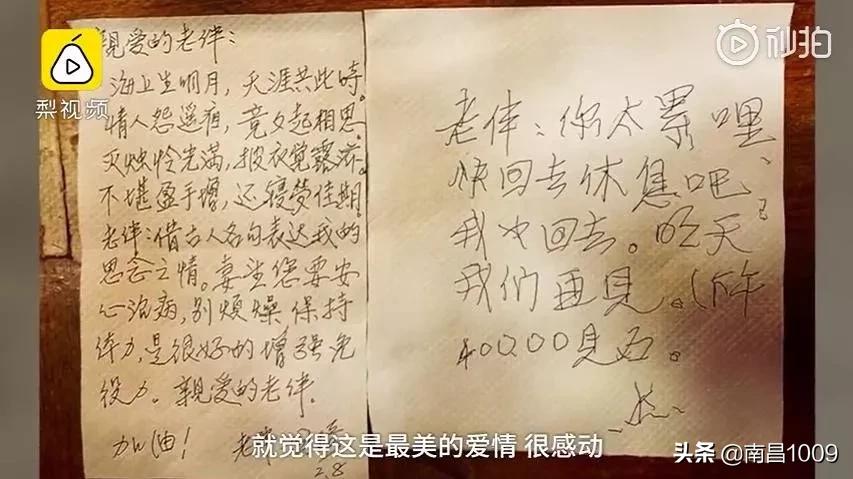 梨视频
秒拍
親爱的老伴：
海上生明月，天涯共此時。
情人怨遥夜，竟夕起相思。
灭烛怜光满，披衣觉露滋。
不堪盈手赠，还寝梦佳期。
老伴：借古人名句表达我的
思念之情。妻望您要安
心治病，别烦燥保持
体力，是很好的增强免
疫力。親爱的老伴。
加油！ 老伴
2.8
老伴：你太累哩、
快回去休息吧
我也回去。明天
我们再見。（下午
见面。
就觉得这是最美的爱情 很感动
头条 @南昌1009